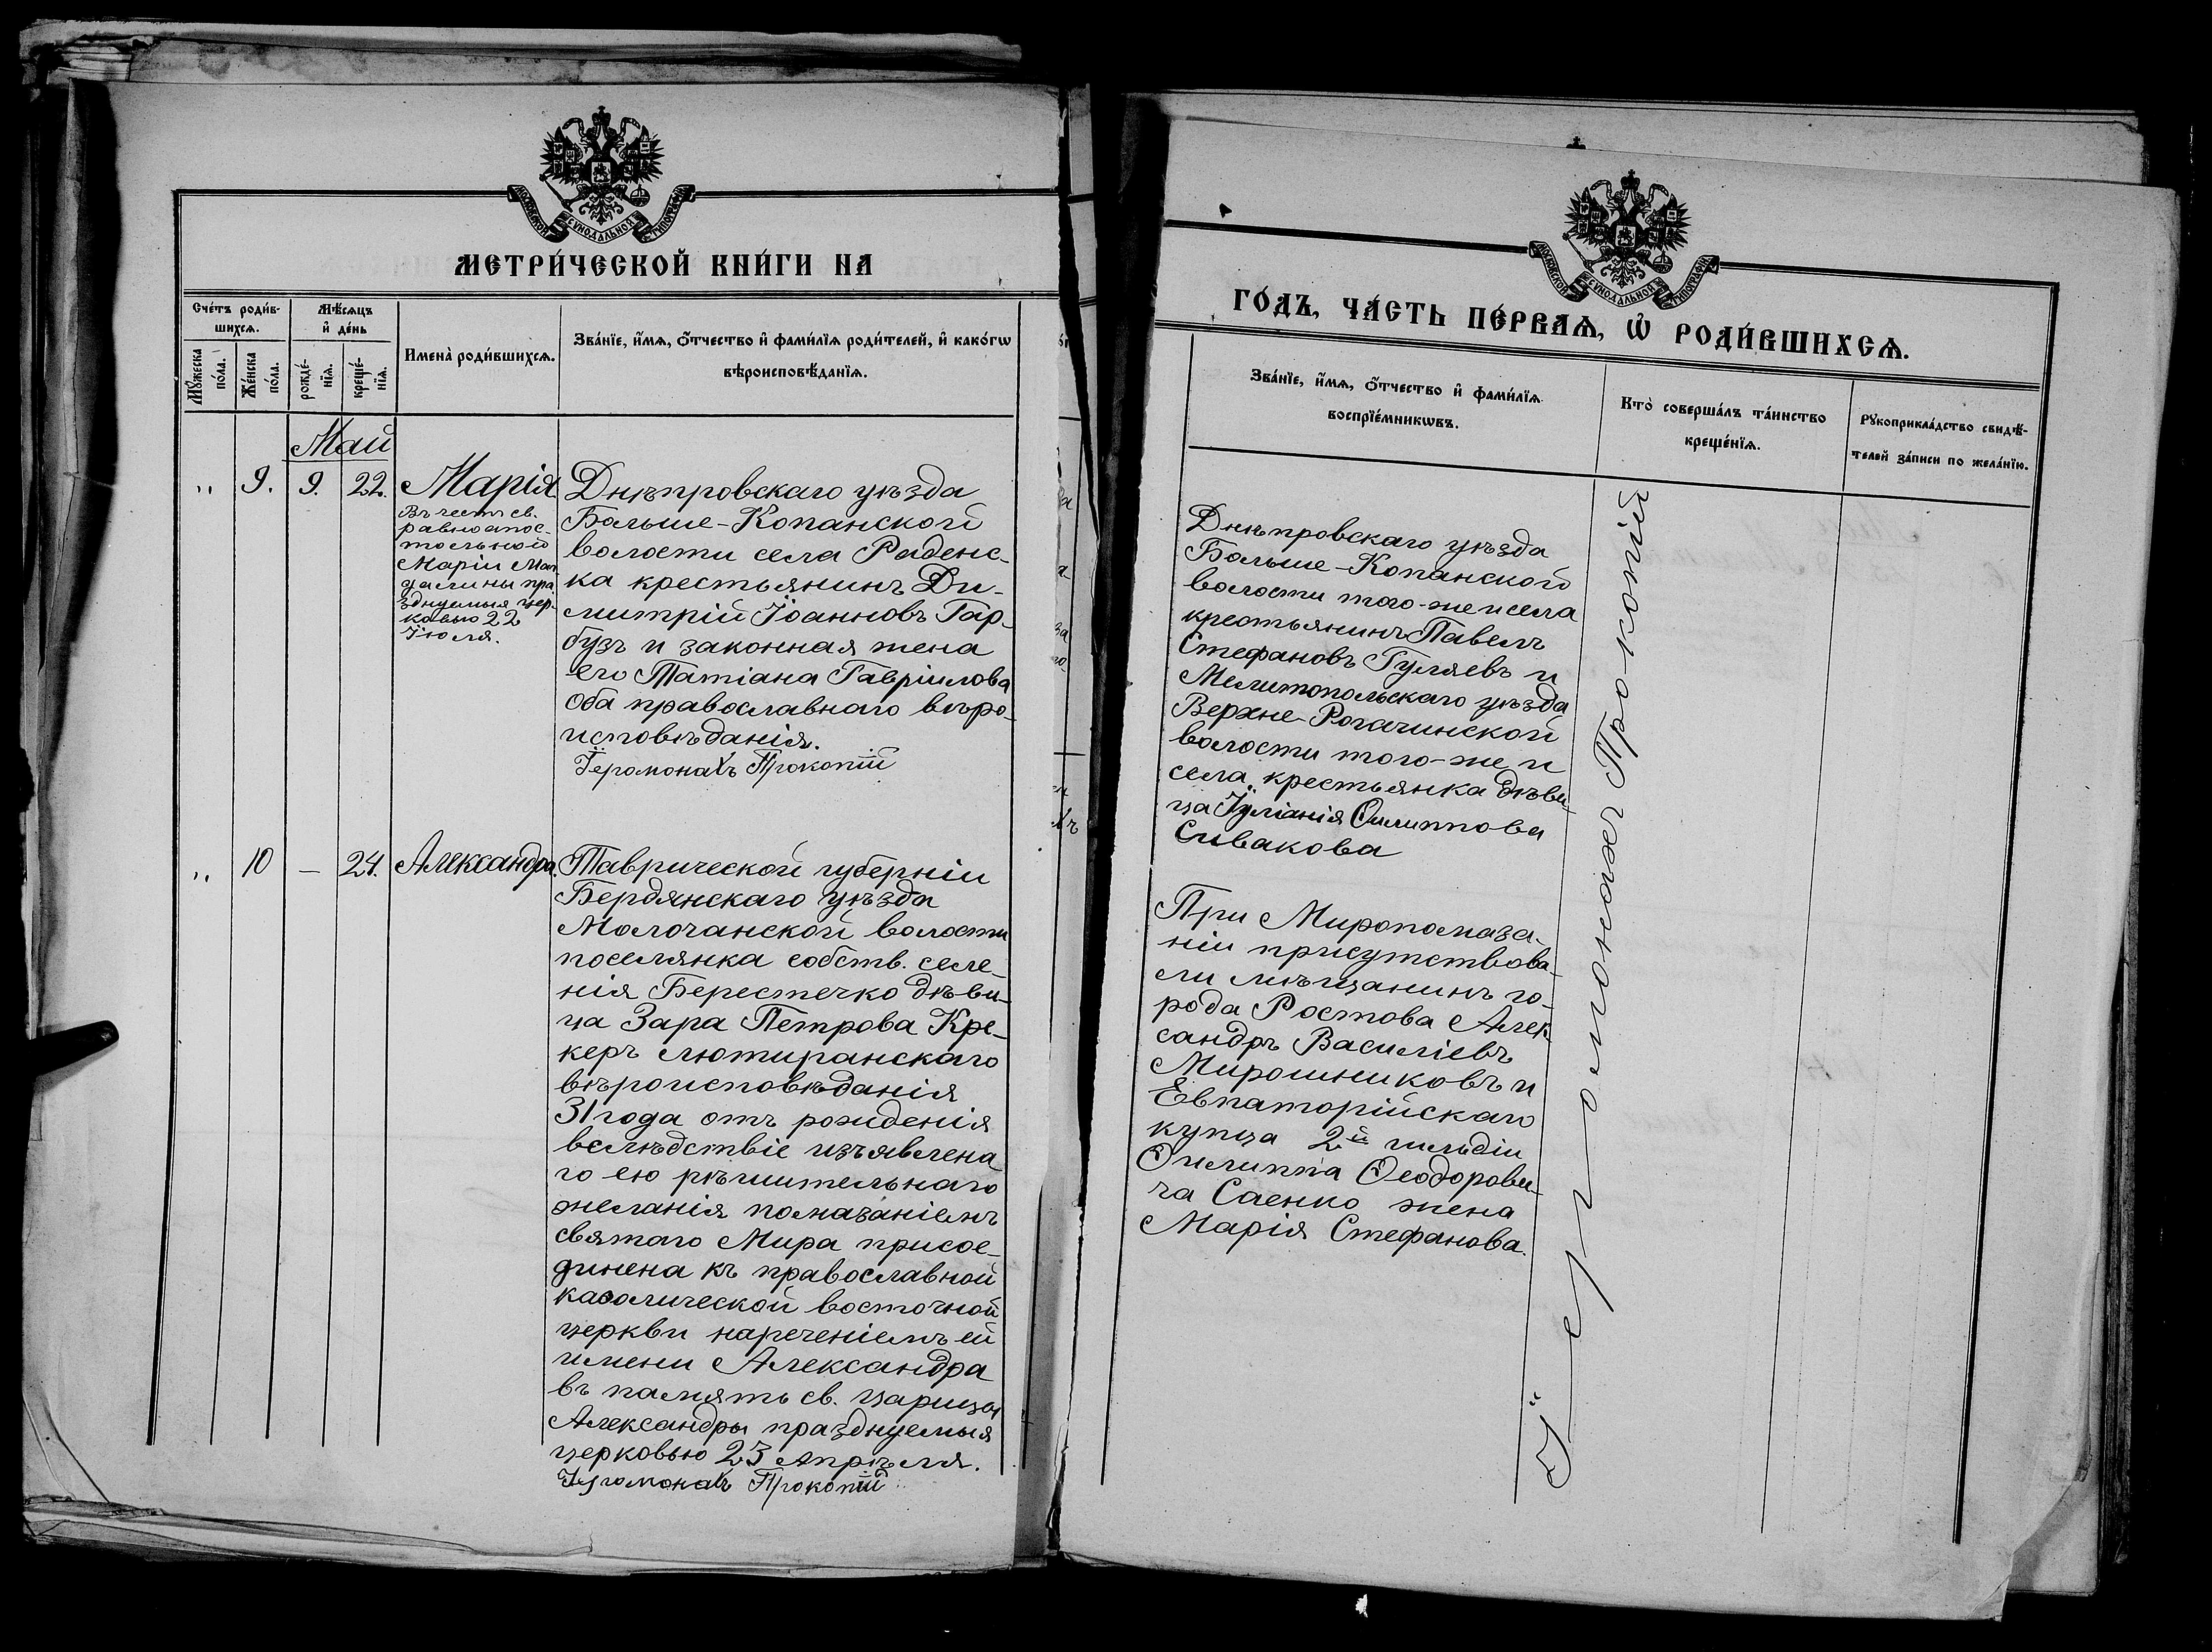 МОСКОВСКОЙ СѴНОДАЛЬНОЙ ТИПОГРАФІИ
МЕТРИ́ЧЕСКОЙ КНИ́ГИ НА
Сче́тъ роди́в-
шихсѧ.
Мѣ́сѧцъ
и҆ де́нь
Имена̀ роди́вшихсѧ.
Зва́нїе, и҆́мѧ, ѻ҆́тчество и҆ фами́лїѧ роди́телей, и҆ како́гѡ
вѣроисповѣ́данїѧ.
Мꙋ́жеска
по́ла.
Же́нска
по́ла.
рожде́-
нїѧ.
креще́-
нїѧ.
Май
„ 9. 9. 22.
Марія
Въ честь св.
равноапос-
тольной
Маріи Маг
далины пра
зднуемыя цер-
ковью 22
Іюля.
Днѣпровскаго уѣзда
Больше-Копанской
волости села Раденс-
ка крестьянинъ Ди-
митрій Іоанновъ Гар-
бузъ и законная жена
его Татіана Гавріилова
Оба православнаго вѣро-
исповѣданія.
Іеромонахъ Прокопій
„ 10 — 24.
Александра.
Таврической губерніи
Бердянскаго уѣзда
Молочанской волости
поселянка собств. селе-
нія Берестечко дѣви-
ца Зара Петрова Кре-
керъ лютиранскаго
вѣроисповѣданія
31 года отъ рожденія
вслѣдствіе изъявлена
го ею рѣшительнаго
желанія помазаніемъ
святаго Мира присое-
динена къ православной
каѳолической восточной
церкви нареченіемъ ей
имени Александра
въ память св. царицы
Александры празднуемыя
церковью 23 Апрѣля.
Іеромонахъ Прокопій
МОСКОВСКОЙ СѴНОДАЛЬНОЙ ТИПОГРАФІИ
ГО́ДЪ, ЧА́СТЬ ПЕ́РВАѦ, Ѡ҆ РОДИ́ВШИХСѦ.
Зва́нїе, и҆́мѧ, ѻ҆́тчество и҆ фами́лїѧ
воспрїе́мникѡвъ.
Кто̀ соверша́лъ та́инство
креще́нїѧ.
Рꙋкоприкла́дство свидѣ́-
телей за́писи по жела́нїю.
Днѣпровскаго уѣзда
Больше-Копанской
волости того-же и села
крестьянинъ Павелъ
Стефановъ Гуляевъ и
Мелитопольскаго уѣзда
Верхне-Рогачинской
волости того-же и
села крестьянка дѣви
ца Іуліанія Филиппова
Сивакова
При Миропомаза-
ніи присутствова-
ли мѣщанинъ го-
рода Ростова Алек
сандръ Василіевъ
Мирошниковъ и
Евпаторійскаго
купца 2й гильдіи
Филиппа Ѳеодорови-
ча Саенко жена
Марія Стефанова.
Іеромонахъ Прокопій